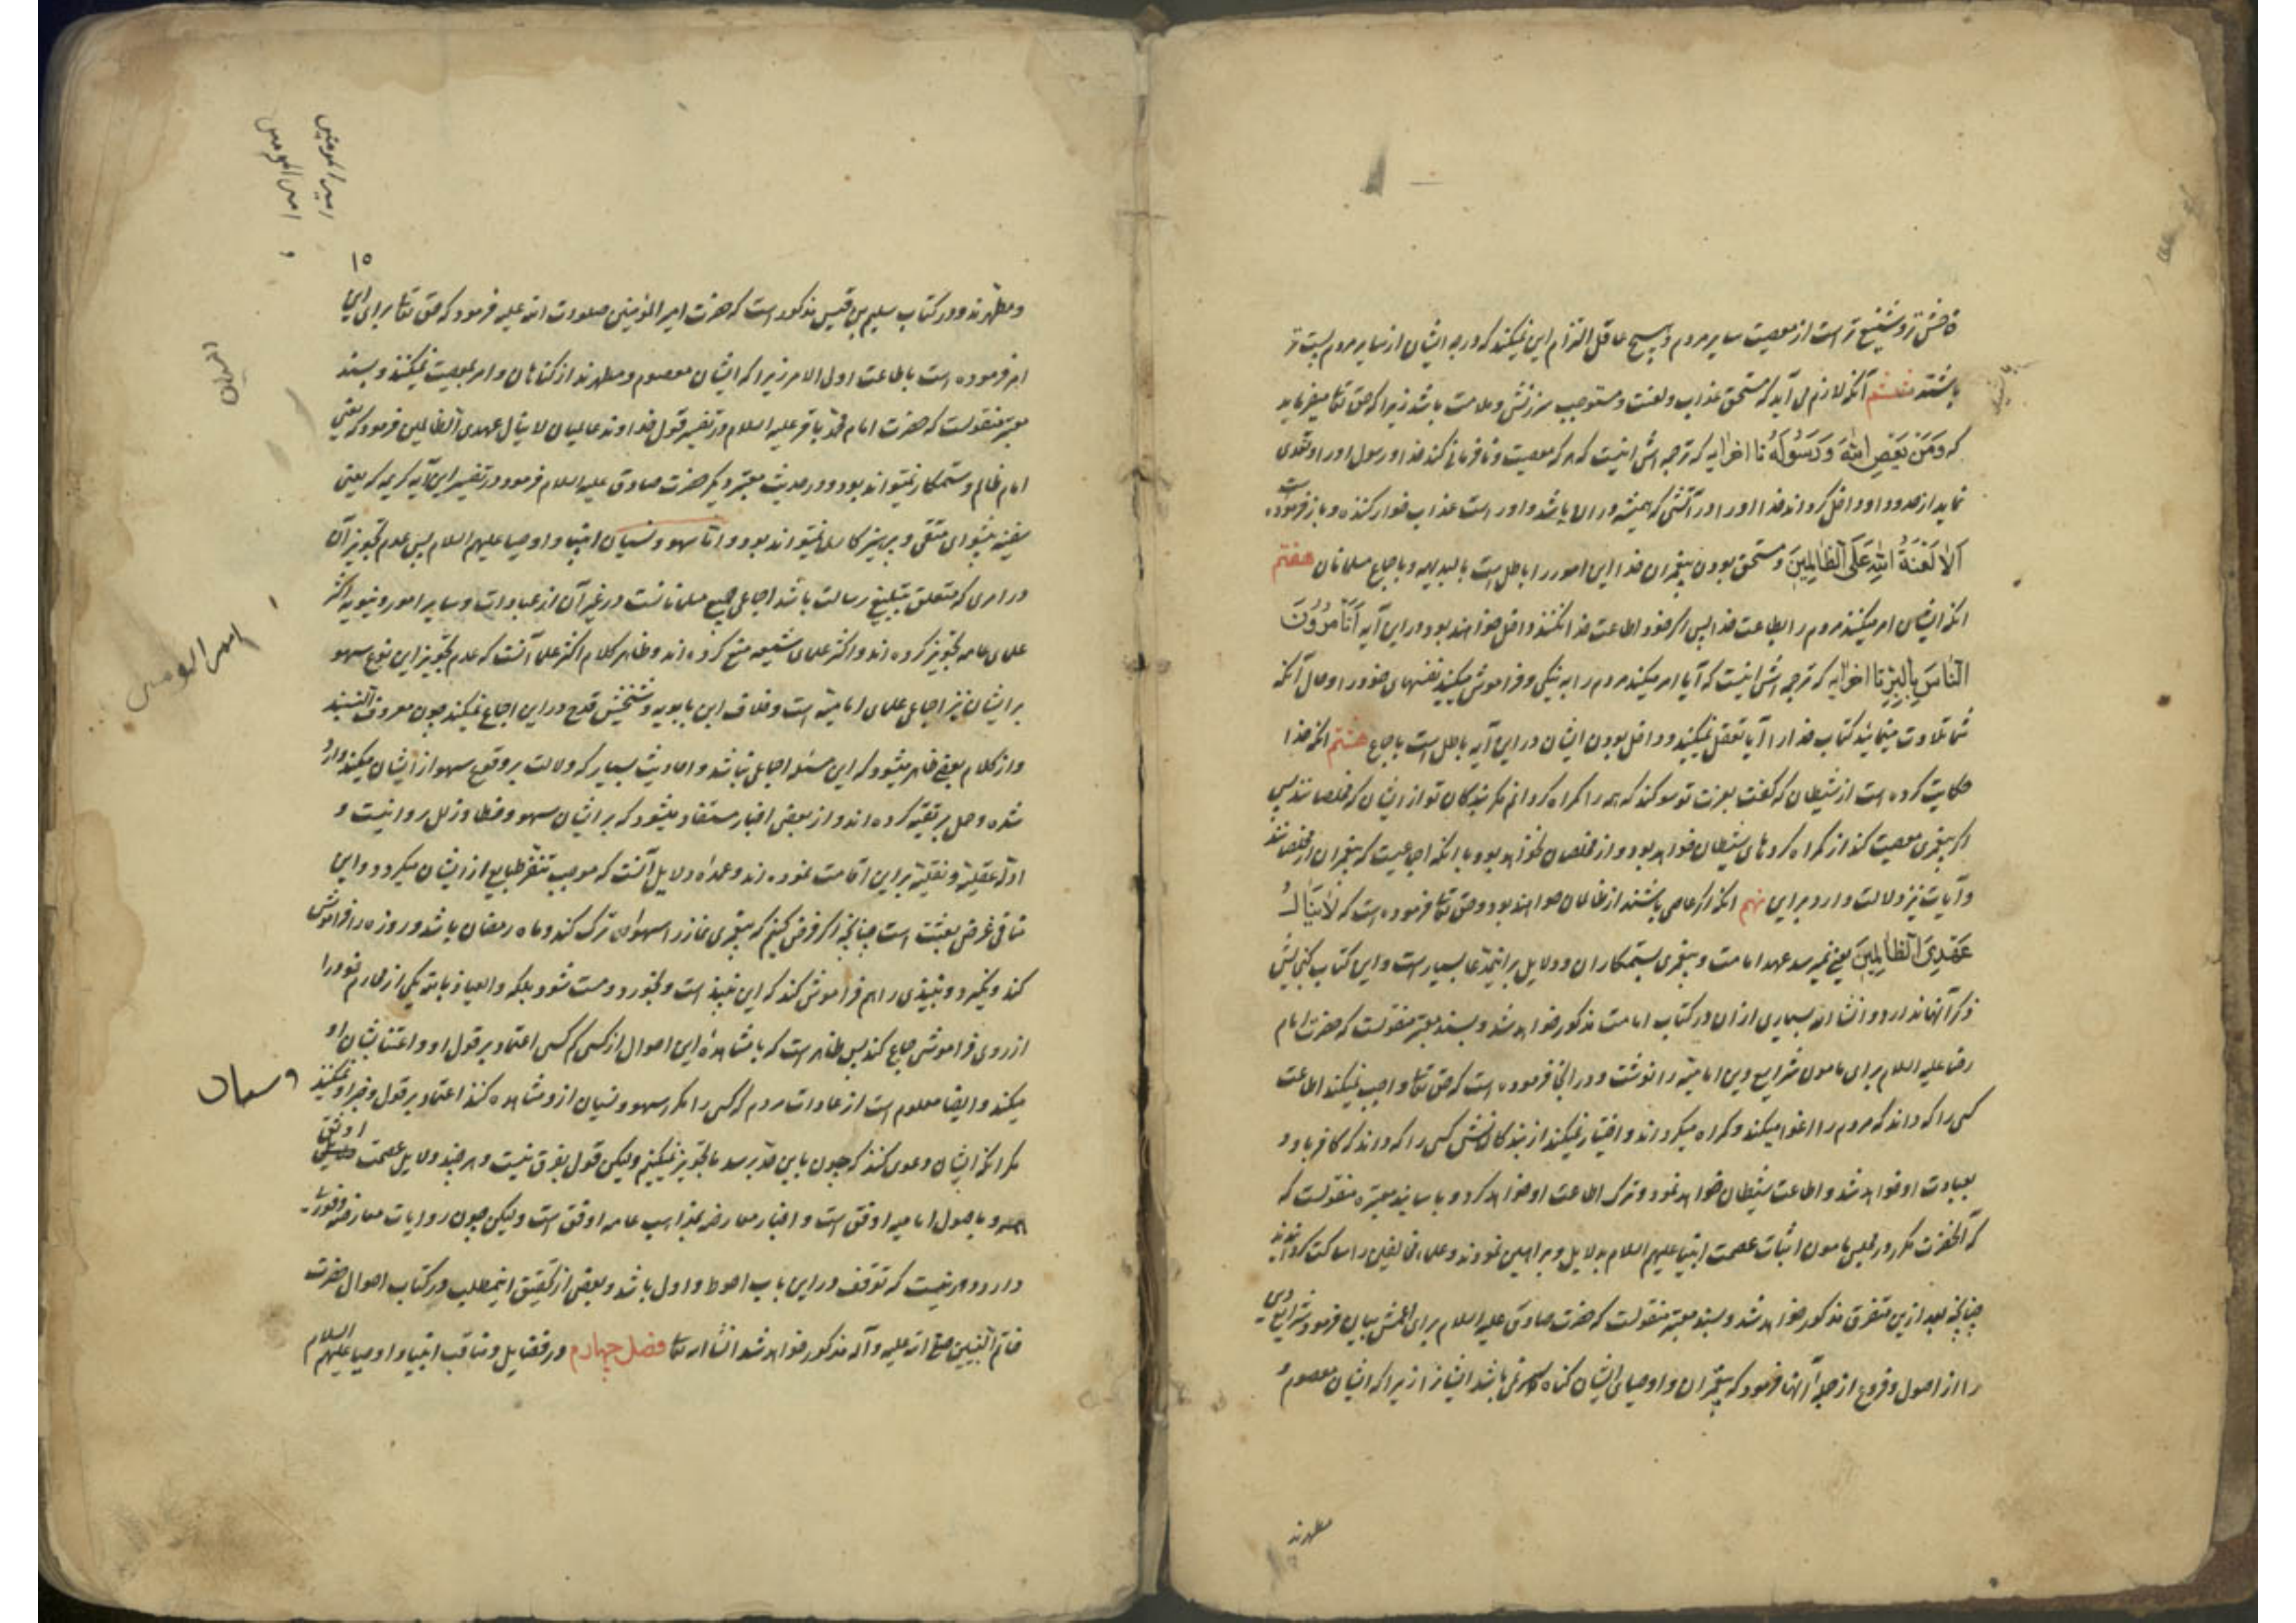 فاحش‌تر و شنیع‌تر است از معصیت سایر مردم و هیچ عاقل التزام این نمیکند که درجه ایشان از سایر مردم پست‌تر
باشند ششم آنکه لازم می‌آید که مستحق عذاب و لعنت و مستوجب سرزنش و ملامت باشد زیرا که حق تعا میفرماید
که وَمَن یَعْصِ اللّٰهَ وَرَسُولَهُ تا اخر آیه که ترجمه‌اش اینست که هر که معصیت و نافرمانی کند خدا و رسول او را و تعدی
نماید از حدود او داخل گرداند خدا او را در آتشی که همیشه در ان باشد و او راست عذاب خوار کننده و باز فرموده است
اَلا لَعْنَةُ اللّٰهِ عَلَی الظّٰالِمِینَ و مستحق بودن پیغمبران خدا این امور را باطل است بالبدیهه و باجماع مسلمانان هفتم
انکه ایشان امر میکنند مردم را بطاعت خدا پس اگر خود اطاعت خدا نکنند داخل خواهند بود در این آیه اَتَأمُرُونَ
النّٰاسَ بِالْبِرِّ تا اخر آیه که ترجمه‌اش اینست که آیا امر میکنید مردم را به نیکی و فراموش میکنید نفسهای خود را و حال آنکه
شما تلاوت مینمائید کتاب خدا را آیا تعقل نمیکنید و داخل بودن ایشان در این آیه باطل است باجماع هشتم انکه خدا
حکایت کرده است از شیطان که گفت بعزت تو سوکند که همه را کمراه کردانم مکر بندکان تو از ایشان که مخلصانند پس
اکر پیغمبری معصیت کند از کمراه کردهای شیطان خواهد بود و از مخلصان نخواهد بود با انکه اجماعیست که پیغمبران از مخلصانند
و آیات نیز دلالت دارد بر این نهم انکه اکر عاصی باشند از ظالمان خواهند بود و حق تعا فرموده است که لا یَنٰالُ
عَهْدِیَ الظّٰالِمِینَ یعنی نمیرسد عهد امامت و پیغمبری بستمکاران و دلایل بر اینمدعا بسیار است و این کتاب کنجایش
ذکر آنها ندارد و انشاء الله بسیاری از ان در کتاب امامت مذکور خواهد شد و بسند معتبر منقولست که حضرت امام
رضا علیه السلام برای مامون شرایع دین امامیه را نوشت و در انجا فرموده است که حق تعا واجب نمیکند اطاعت
کسی را که داند که مردم را اغوا میکند و کمراه میکرداند و اختیار نمیکند از بندکانش کسی را که داند که کافر باو و
بعبادت او خواهد شد و اطاعت شیطان خواهد نمود و ترک اطاعت او خواهد کرد و باسانید معتبره منقولست که
که آنحضرت مکرر در مجلس مامون اثبات عصمت انبیا علیهم السلام بدلایل و براهین نمودند و علماء مخالفین را ساکت کردانیدند
چنانچه بعد ازین متفرق مذکور خواهد شد و بسند معتبر منقولست که حضرت صادق علیه السلام برای اعمش بیان فرمود شرایع دین
را از اصول و فروع از جمله آنها فرمود که پیغمبران و اوصیای ایشان کناه نمی‌باشد ایشانرا زیرا که ایشان معصوم و
مطهرند
۱۵
امیرالمومنین
امیرالمومنین و
و مطهرند و در کتاب سلیم بن قیس مذکور است که حضرت امیر المؤمنین صلوات الله علیه فرمود که حق تعا برای این
امر فرموده است باطاعت اولی الامر زیرا که ایشان معصوم و مطهرند از کناهان و امر بمعصیت نمیکنند و بسند
معتبر منقولست که حضرت امام محمد باقر علیه السلام در تفسیر قول خداوند عالمیان لا ینال عهدی الظالمین فرمود که یعنی
امام ظالم و ستمکار نمیتواند بود و در حدیث معتبر دیکر حضرت صادق علیه السلام فرمود در تفسیر این آیه کریمه که یعنی
سفیه پیشوای متقی و پرهیزکار نمیتواند بود و اما سهو و نسیان انبیا و اوصیا علیهم السلام پس عدم تجویز آن
در امری که متعلق بتبلیغ رسالت باشد اجماعی جمیع مسلمانانست و در غیر آن از عبادات و سایر امور دنیویه اکثر
علمای عامه تجویز کرده‌اند و اکثر علمای شیعه منع کرده‌اند و ظاهر کلام اکثر علما آنست که عدم تجویز این نوع سهو
بر ایشان نیز اجماعی علمای امامیه است و خلاف ابن بابویه و شیخش قدح در این اجماع نمیکند چون معروف النسبند
و از کلام بعضی ظاهر میشود که این مسئله اجماعی نباشد و احادیث بسیار که دلالت بر وقوع سهو از ایشان میکند وارد
شده و حمل بر تقیه کرده‌اند و از بعضی اخبار مستفاد میشود که بر ایشان سهو و خطا و زلل روا نیست و
ادله عقلیه و نقلیه بر این اقامت نموده‌اند و عمده دلایل آنست که موجب تنفر طبایع از ایشان میکردد و این
منافی غرض بعثت است چنانچه اکر فرض کنیم که پیغمبری نماز را سهوا ترک کند و ماه رمضان باشد و روزه را فراموش
کند و نکیرد و نبیذی را هم فراموش کند که این نبیذ است و بخورد و مست شود بلکه و العیاذ بالله یکی از محارم خود را
از روی فراموشی جماع کند پس ظاهر است که با مشاهده این احوال از کسی کم کسی اعتماد بر قول او و اعتنا بشان او
میکند و ایضا معلوم است از عادات مردم که کسی را مکرر سهو و نسیان ازو مشاهده کنند اعتماد بر قول و خبر او نمیکنند
مکر انکه ایشان دعوی کنند که چون باین حد برسد ما تجویز نمیکنیم ولیکن قول بفرق نیست و هر چند دلایل عصمت اوثق
و باصول امامیه اوفق است و اخبار معارضه بمذاهب عامه اوفق است ولیکن چون روایات معارضه وفور
دارد دور نیست که توقف در این باب احوط و اولی باشد و بعضی از تحقیق اینمطلب در کتاب احوال حضرت
خاتم النبیین صلی الله علیه و آله مذکور خواهد شد انشاء الله تعا فصل چهارم در فضایل و مناقب انبیا و اوصیا علیهم السلام